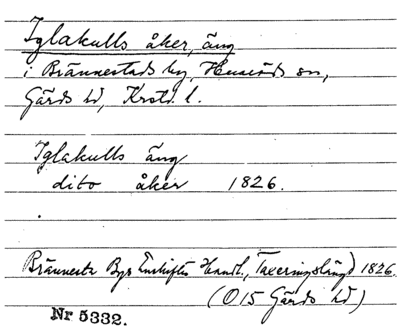 Iglakulls åker, äng
i Brännestads by, Huaröds sn,
Gärds hd, Krstd. l.
Iglakulls äng
dito åker 1826.
Brännesta Bys Enskiftes Handl., Taxeringslängd 1826.
(O15 Gärds hd)
Nr 5332.